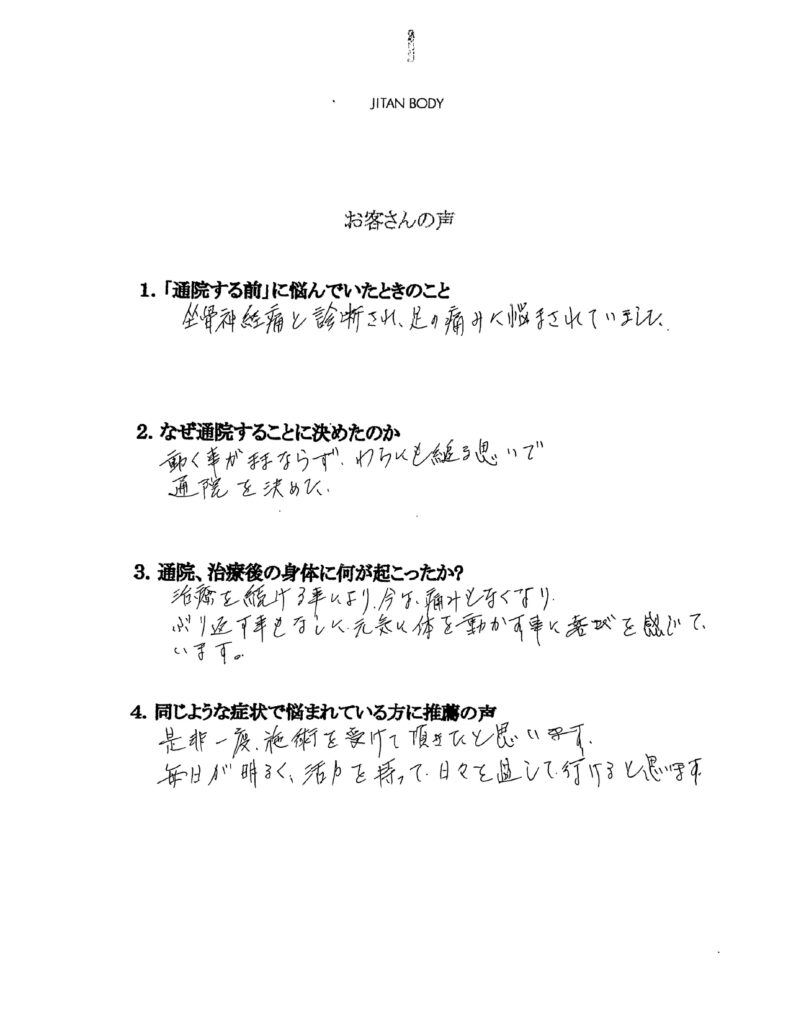 JITAN BODY
お客さんの声
1. 「通院する前」に悩んでいたときのこと
坐骨神経痛と診断され、足の痛みに悩まされていました。
2. なぜ通院することに決めたのか
動く事がままならず、わらにも縋る思いで
通院を決めた。
3. 通院、治療後の身体に何が起こったか?
治療を続ける事により、今は、痛みもなくなり、
ぶり返す事もなしに、元気に体を動かす事に喜びを感じて、
います。
4. 同じような症状で悩まれている方に推薦の声
是非一度、施術を受けて頂きたいと思います。
毎日が明るく、活力を持って、日々を過して行けると思います